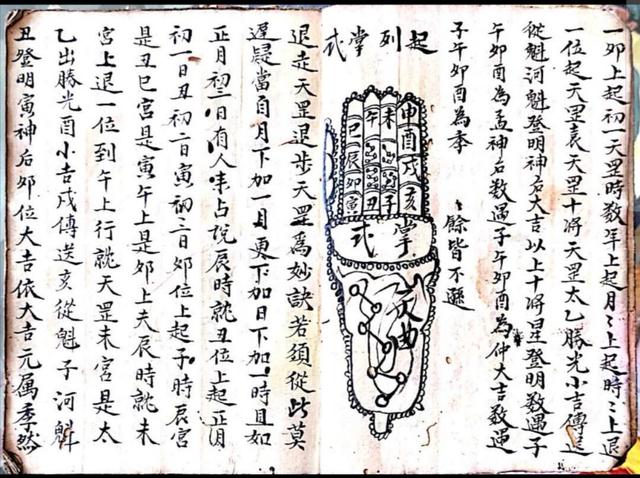 一卯上起初一天罡時數年上起月〻上起時〻上退
一位起天罡袁天罡十將天罡太乙勝光小吉傳送
從魁河魁登明神名大吉以上十將是登明數遇子
午卯酉為孟神名數遇子午卯酉為仲大吉數遇
子午卯酉為季 餘皆不遜
起列掌式
申酉戌亥
未子
午丑
巳辰卯寅
掌式
文曲
退走天罡退步天罡為妙訣若須從此莫
遲疑當自月下加一月更下加日下加一時且如
正月初一日有人來占說辰時就丑位上起正月
初一日丑初二日寅初三日卯位上起子時辰宮
是丑巳宮是寅午上是卯上夫辰時就未
宮上退一位到午上行就天罡未宮是太
乙出勝光酉小吉戌傳送亥從魁子河魁
丑登明寅神后卯位大吉依大吉元属季然